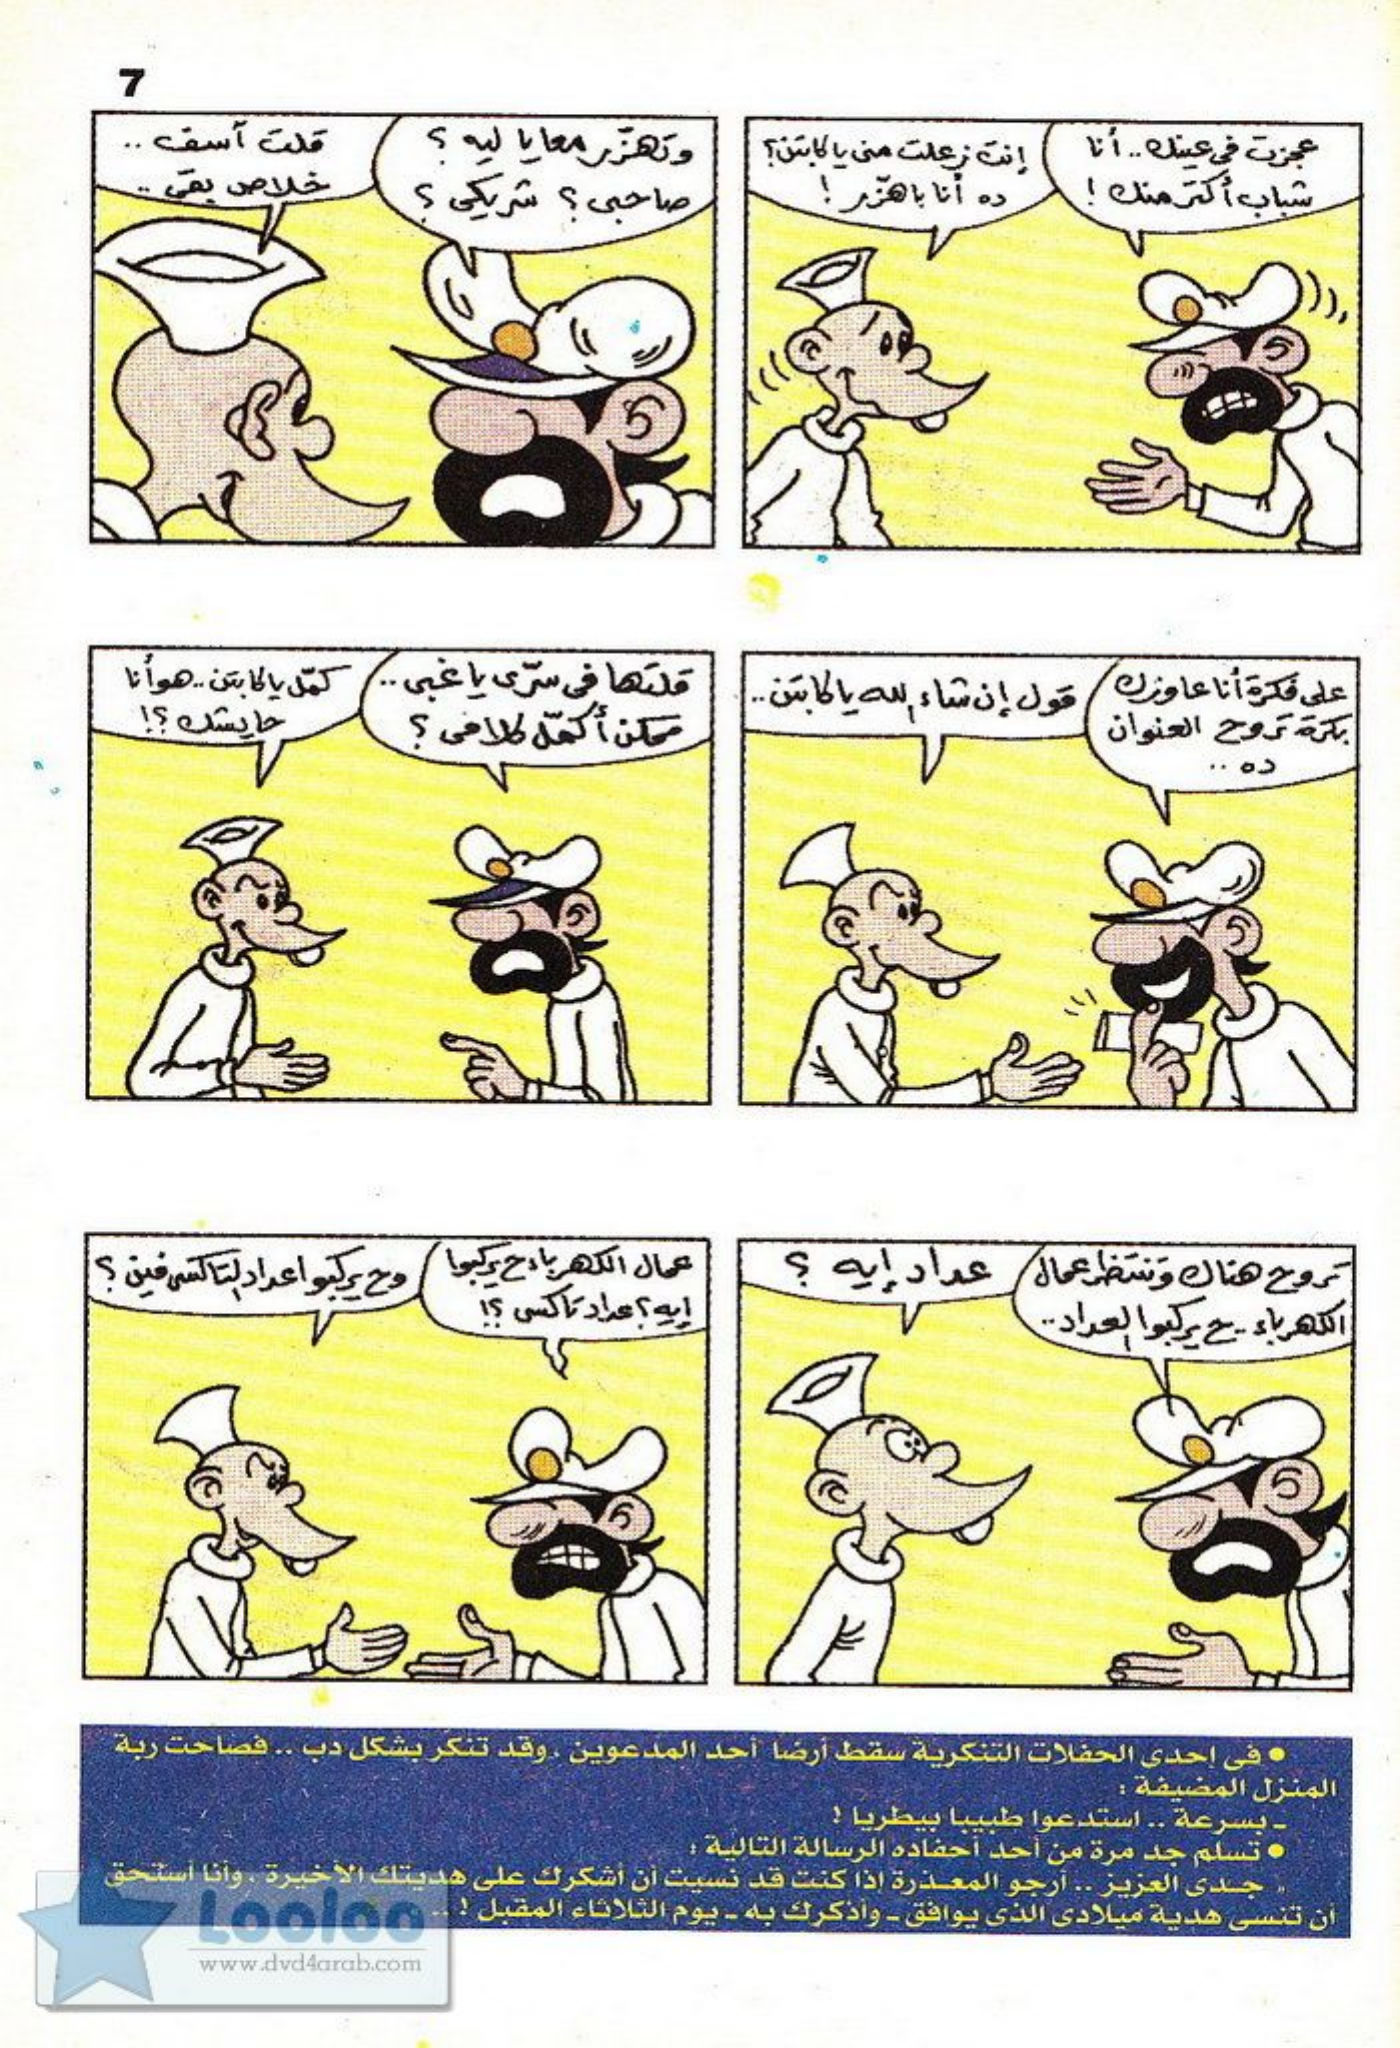 7
عجزت في عينك.. أنا
شباب أكتر منك !
إنت زعلت مني يا كابتن؟
ده أنا باهزّر !
وتهزّر معايا ليه ؟
صاحبى ؟ شريكى ؟
قلت آسف ..
خلاص بقى ..
على فكرة أنا عاوزك
بكرة تروح العنوان
ده ..
قول إن شاء الله يا كابتن..
قلتها في سرّى يا غبى ..
ممكن أكمّل كلامى ؟
كمّل يا كابتن.. هو أنا
حايشك ؟!
تروح هناك وتنتظر عمال
الكهرباء.. ح يركبوا العداد..
عداد إيه ؟
عمال الكهرباء ح يركبوا
إيه ؟ عداد تاكسى ؟!
وح يركبوا عداد التاكسى فين ؟
• فى إحدى الحفلات التنكرية سقط أرضا أحد المدعوين ، وقد تنكر بشكل دب .. فصاحت ربة
المنزل المضيفة :
ـ بسرعة .. استدعوا طبيبا بيطريا !
• تسلم جد مرة من أحد أحفاده الرسالة التالية :
" جدى العزيز .. أرجو المعذرة إذا كنت قد نسيت أن أشكرك على هديتك الأخيرة ، وأنا أستحق
أن تنسى هدية ميلادى الذى يوافق ـ وأذكرك به ـ يوم الثلاثاء المقبل ! ..
Looloo
www.dvd4arab.com